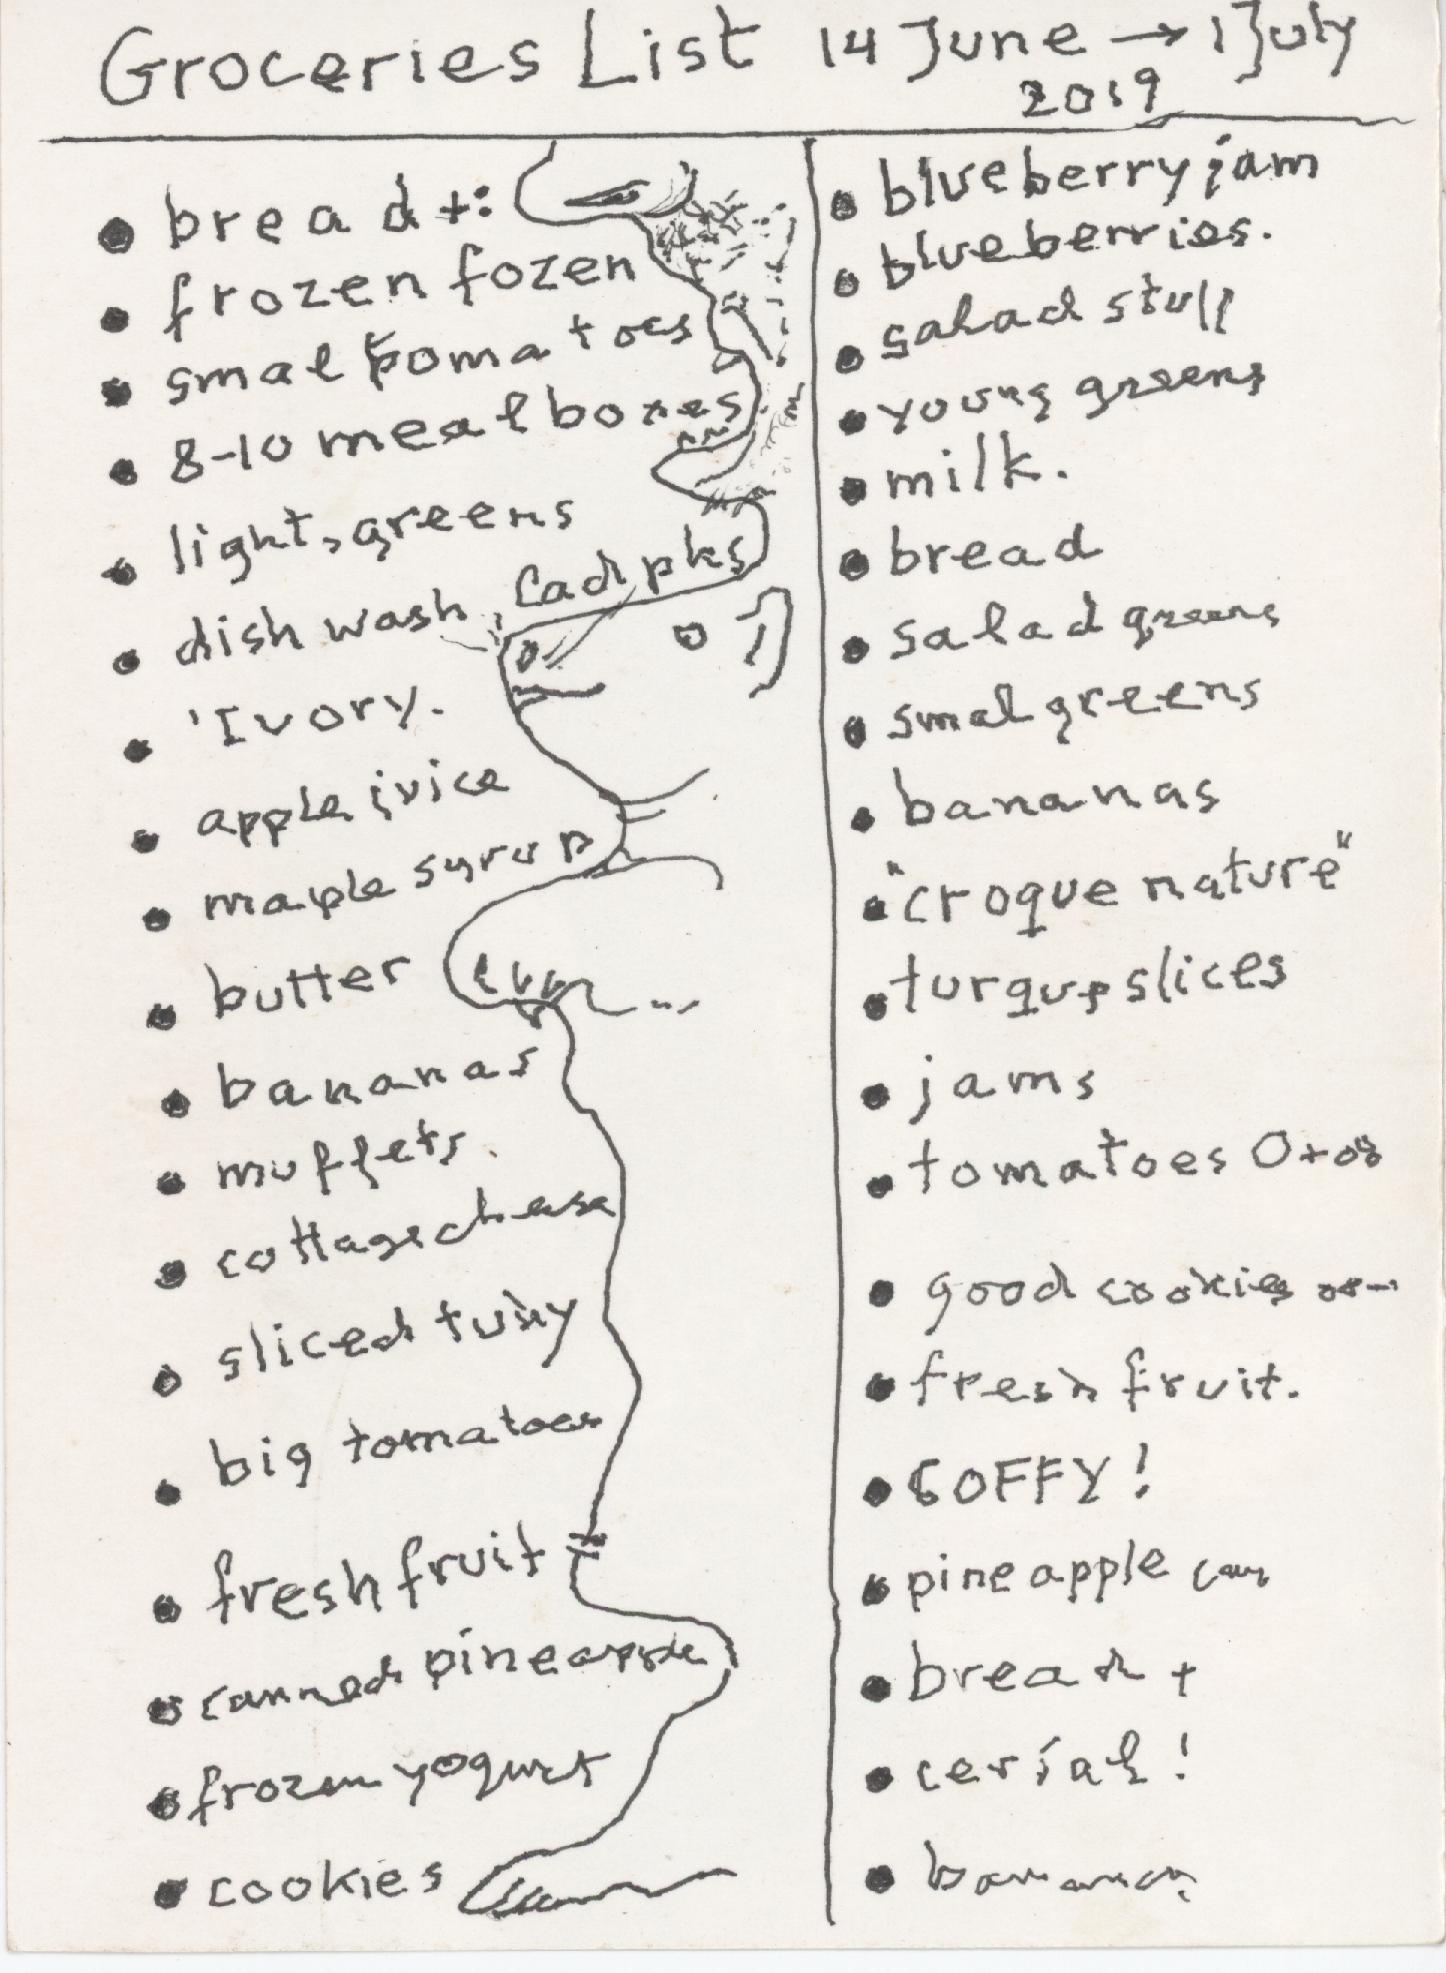 Groceries List 14 June → 1 July
2019
• bread +:
• frozen fozen
• smal tomatoes
• 8-10 meal boxes
• light, greens
• dish wash, pks
• 'Ivory.
• apple juice
• maple syrup
• butter
• bananas
• muffets
• cottage cheese
• sliced
• big tomatoes
• fresh fruit
• canned pineapple
• frozen yogurt
• cookies
• blueberry jam
• blueberries.
• salad stuff
• young greens
• milk.
• bread
• salad greens
• smal greens
• bananas
• "croque nature"
• turque slices
• jams
• tomatoes
• good cookies
• fresh fruit.
• COFFY!
• pineapple
• bread +
• cerial!
• bananas